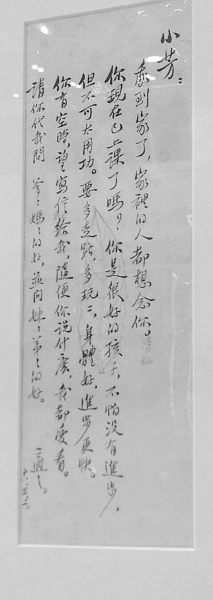 小芳：
我到家了，家裡的人都想念你。
你現在已上課了嗎？你是很好的孩子，不怕没有進步，
但不可太用功。要多走路，多玩玩，身體好，進步更快。
你有空時，望寫信給我，隨便你说什麽，我都愛看。
請你代我問爸爸媽媽的好，並问妹妹弟弟的好。
三毛